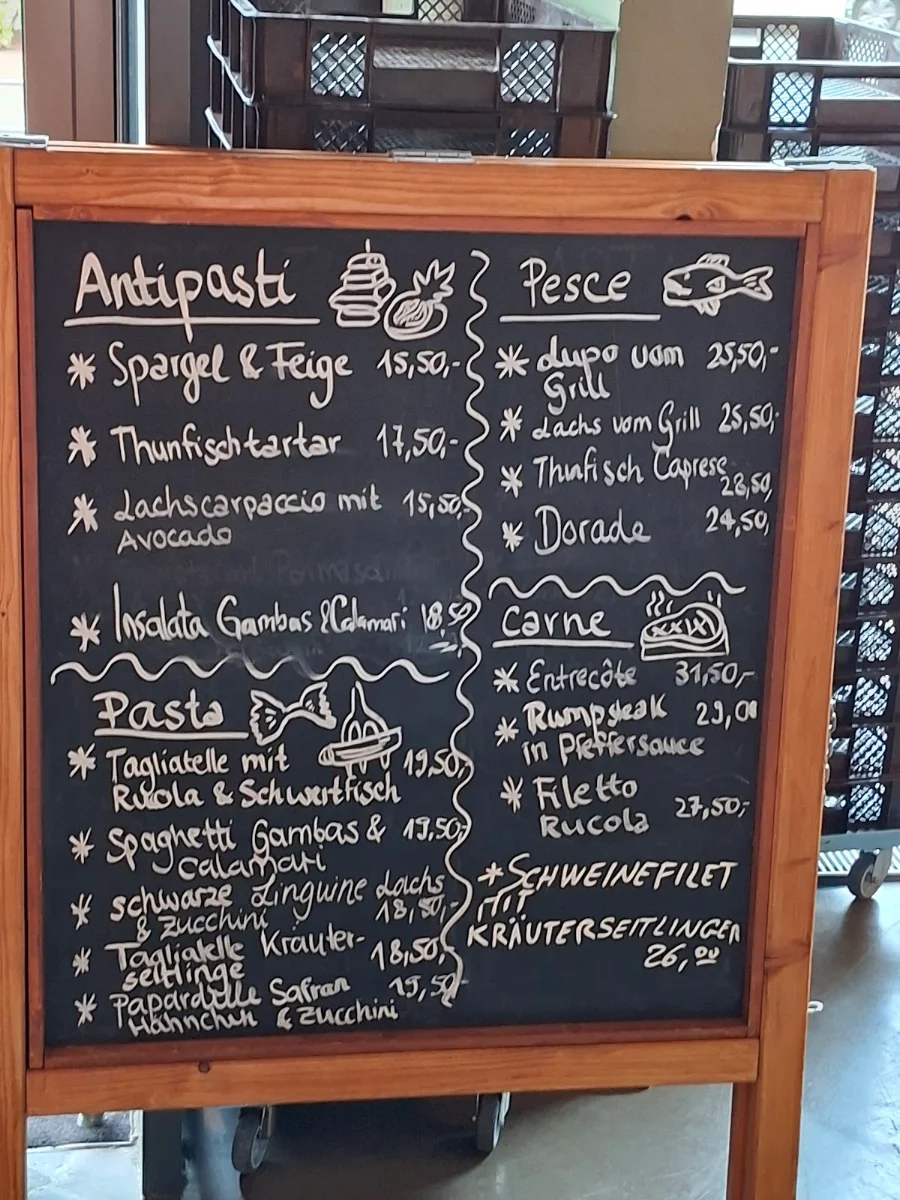 Antipasti
* Spargel & Feige 15,50,-
* Thunfischtartar 17,50,-
* Lachscarpaccio mit 15,50,
Avocado
* Insalata Gambas & Calamari 18,50
Pasta
* Tagliatelle mit 19,50,
Rucola & Schwertfisch
* Spaghetti Gambas & 19,50,-
Calamari
* schwarze Linguine Lachs
& Zucchini 18,50,-
* Tagliatelle Kräuter-
seitlinge 18,50,
* Papardelle Safran 19,50,-
Hähnchen & Zucchini
Pesce
* Lupo vom 25,50,-
Grill
* Lachs vom Grill 25,50,-
* Thunfisch Caprese
28,50,
* Dorade 24,50,
Carne
* Entrecôte 31,50,-
* Rumpsteak 29,00
in Pfeffersauce
* Filetto
Rucola 27,50,-
* SCHWEINEFILET
MIT
KRÄUTERSEITLINGEN
26,00